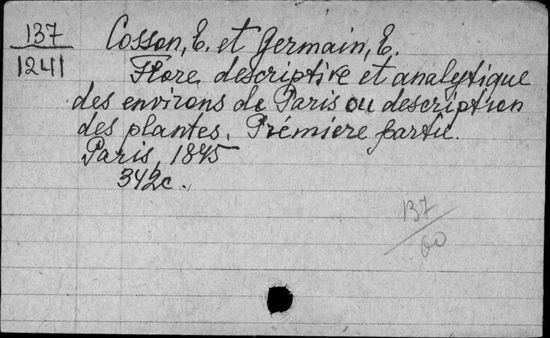 137
1241
Cosson, E. et Germain, E.
Flore descriptive et analytique
des environs de Paris ou description
des plantes. Prémiere partie.
Paris, 1845
342c.
137
00